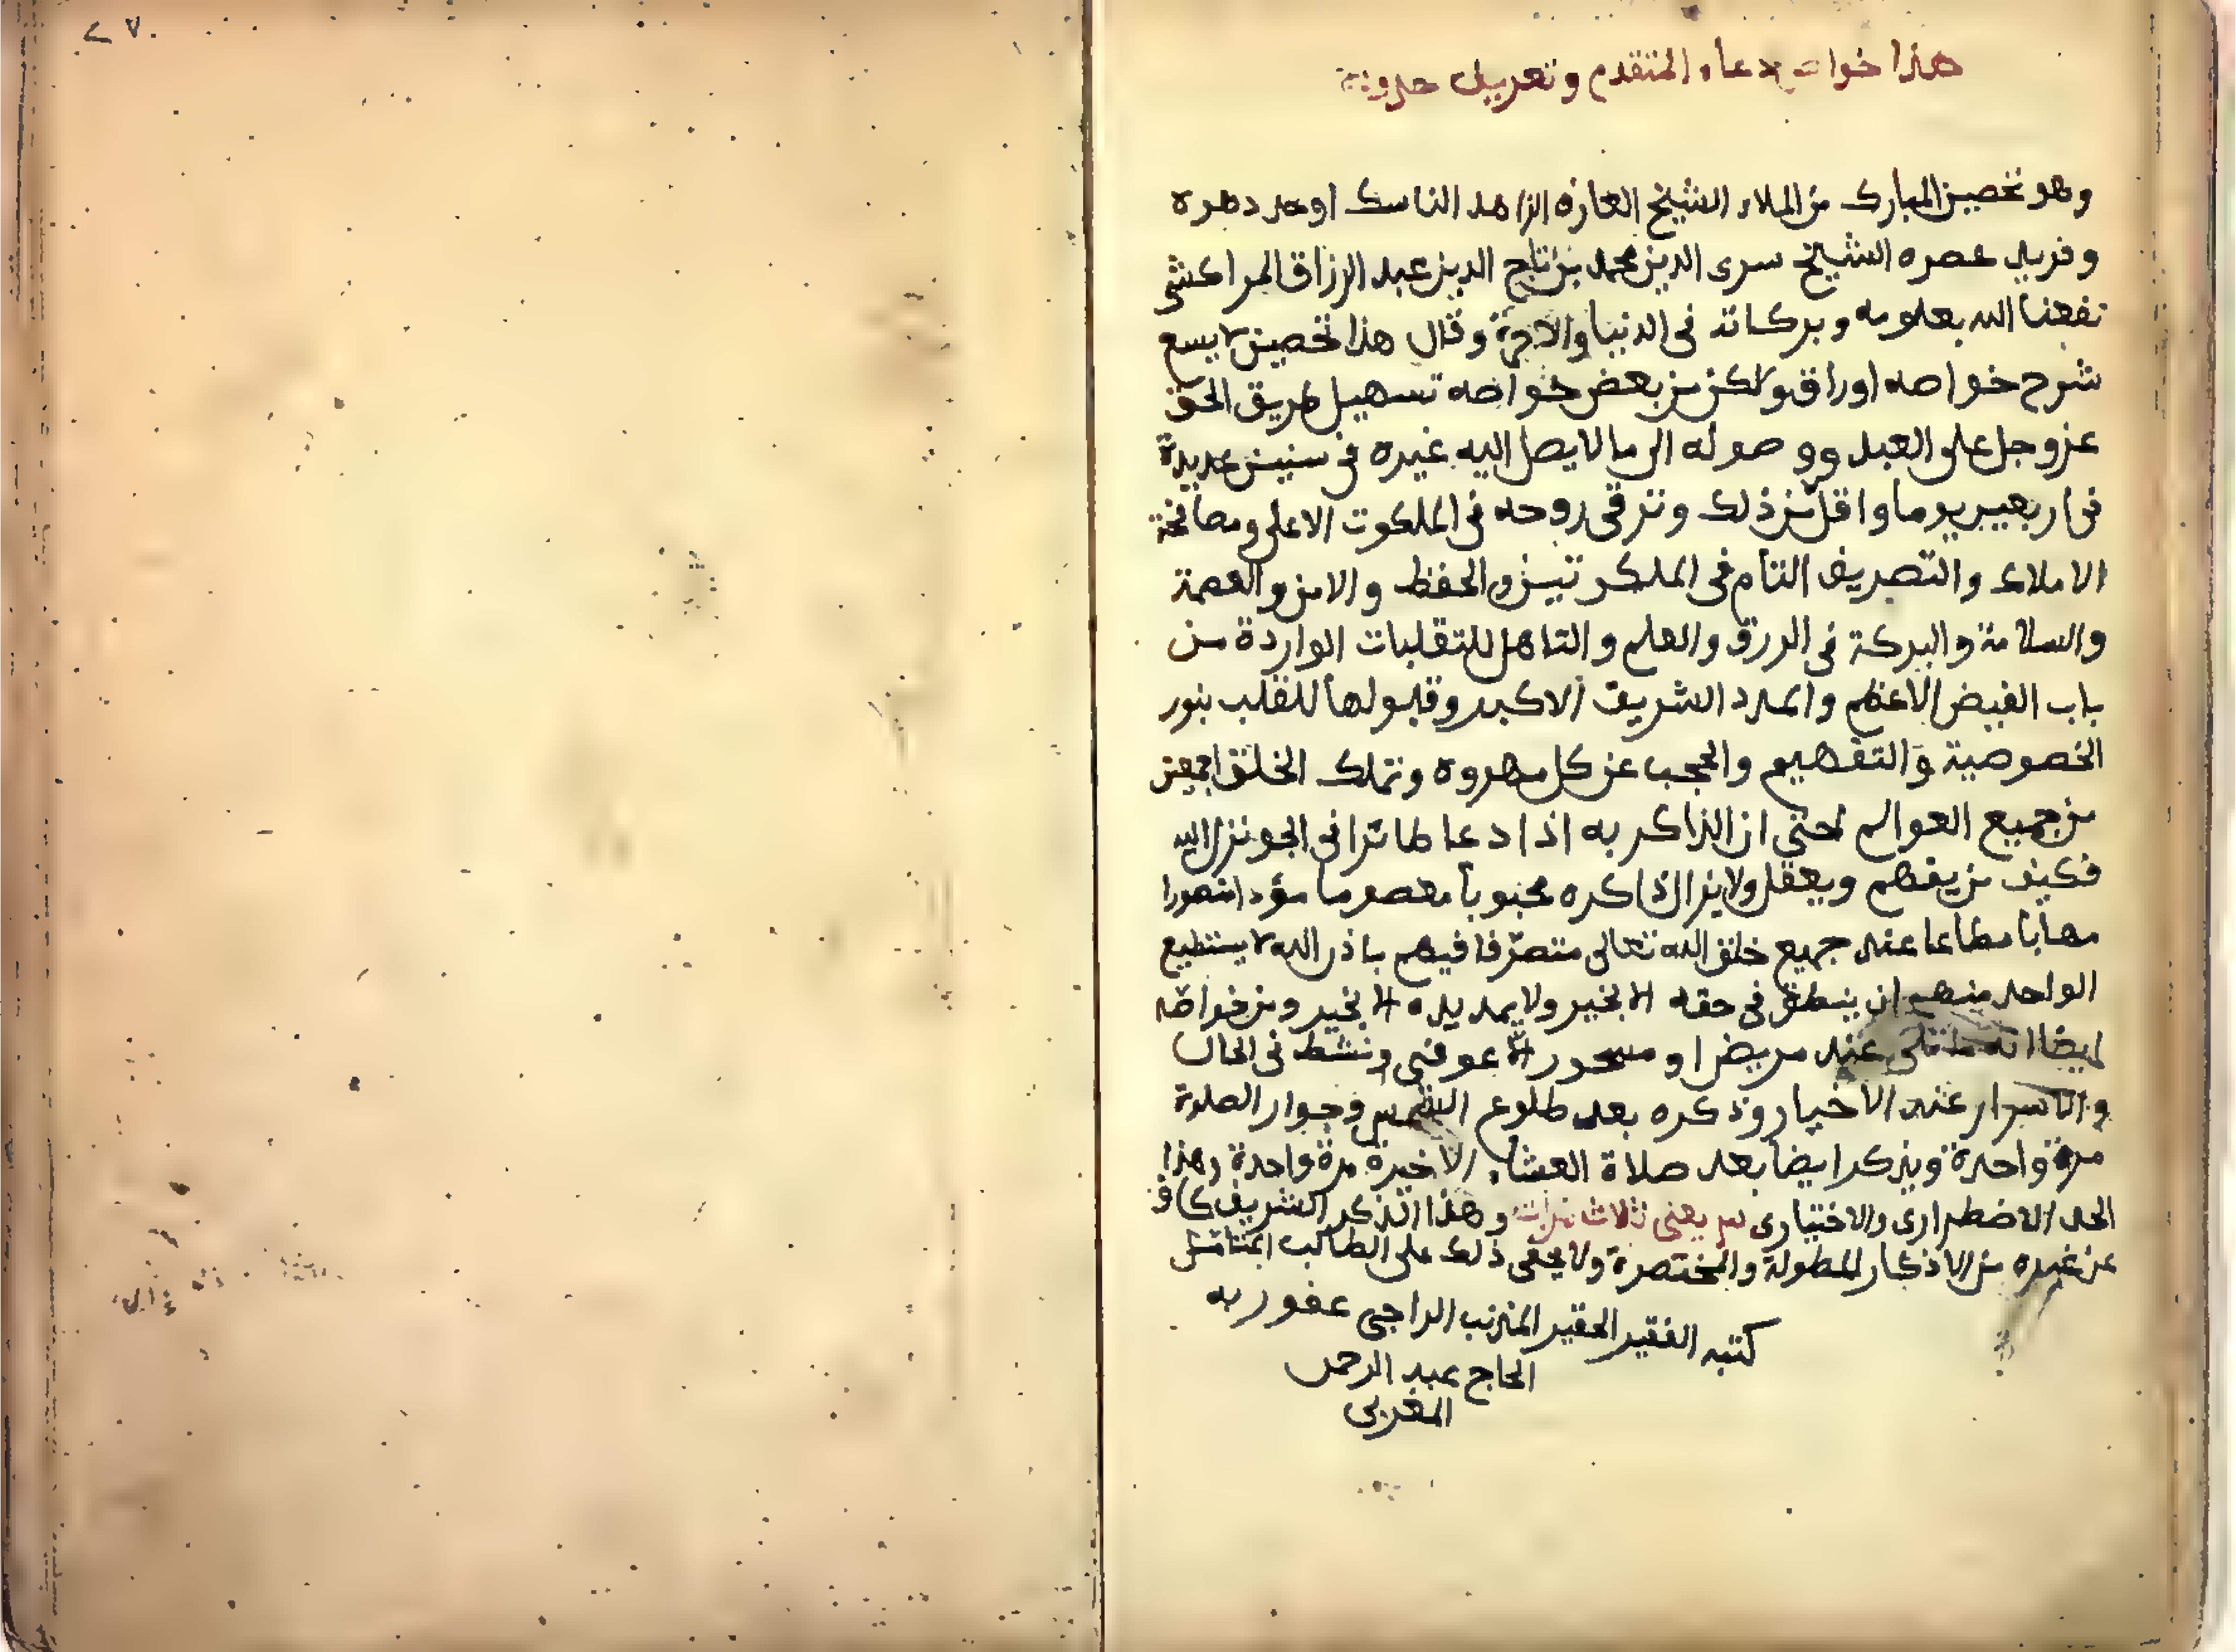 هذا خواص دعاء المتقدم وتعريف حروفه
وهو تحصين المبارك من املاء الشيخ العارف الزاهد الناسك اوحد دهره
وفريد عصره الشيخ سرى الدين محمد بن تاج الدين عبد الرزاق المراكشى
نفعنا الله بعلومه وبركاته فى الدنيا والاخرة وقال هذا تحصين لا يسع
شرح خواصه اوراق ولكن من بعض خواصه تسهيل طريق الحق
عزوجل على العبد ووصوله الى ما لا يصل اليه غيره فى سنين عديدة
فى اربعين يوما واقل من ذلك وترقى روحه فى الملكوت الاعلى ومصافحة
الاملاك والتصريف التام فى الملكوتين والحفظ والامن والعصمة
والسلامة والبركة فى الرزق والعلم والتاهل للتقلبات الواردة من
باب الفيض الاعظم والمدد الشريف الاكبر وقبولها للقلب بنور
الخصوصية والتفهيم والحجب عن كل مكروه وتملك الخلق اجمعين
من جميع العوالم حتى ان الذاكر به اذا دعا طائرا فى الجو نزل اليه
فكيف من يفهم ويعقل ولا يزال ذاكره محبوبا معصوما مؤيدا منصورا
مهابا مطاعا عند جميع خلق الله تعالى متصرفا فيهم باذن الله لا يستطيع
الواحد منهم ان ينطق فى حقه الا بخير ولا يمد يده الا بخير ومن خواصه
ايضا انه ما تلى عند مريض او مسحور الا عوفى ونشط فى الحال
والاسرار عند الاخيار وذكره بعد طلوع الشمس وجواز الصلاة
مرة واحدة ويذكر ايضا بعد صلاة العشاء الاخيرة مرة واحدة وهذا
الحد الاضطرارى والاختيارى يعنى ثلاث مرات وهذا الذكر الشريف كاف
عن غيره من الاذكار المطولة والمختصرة ولا يخفى ذلك على الطالب
كتبه الفقير الحقير المذنب الراجى عفو ربه
الحاج عبد الرحمن
المغربى
٢٧